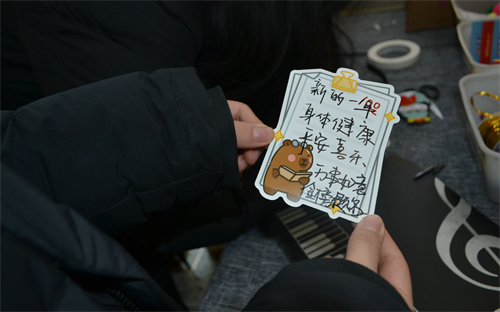 新的一年
身体健康
平安喜乐
万事如意
金榜题名